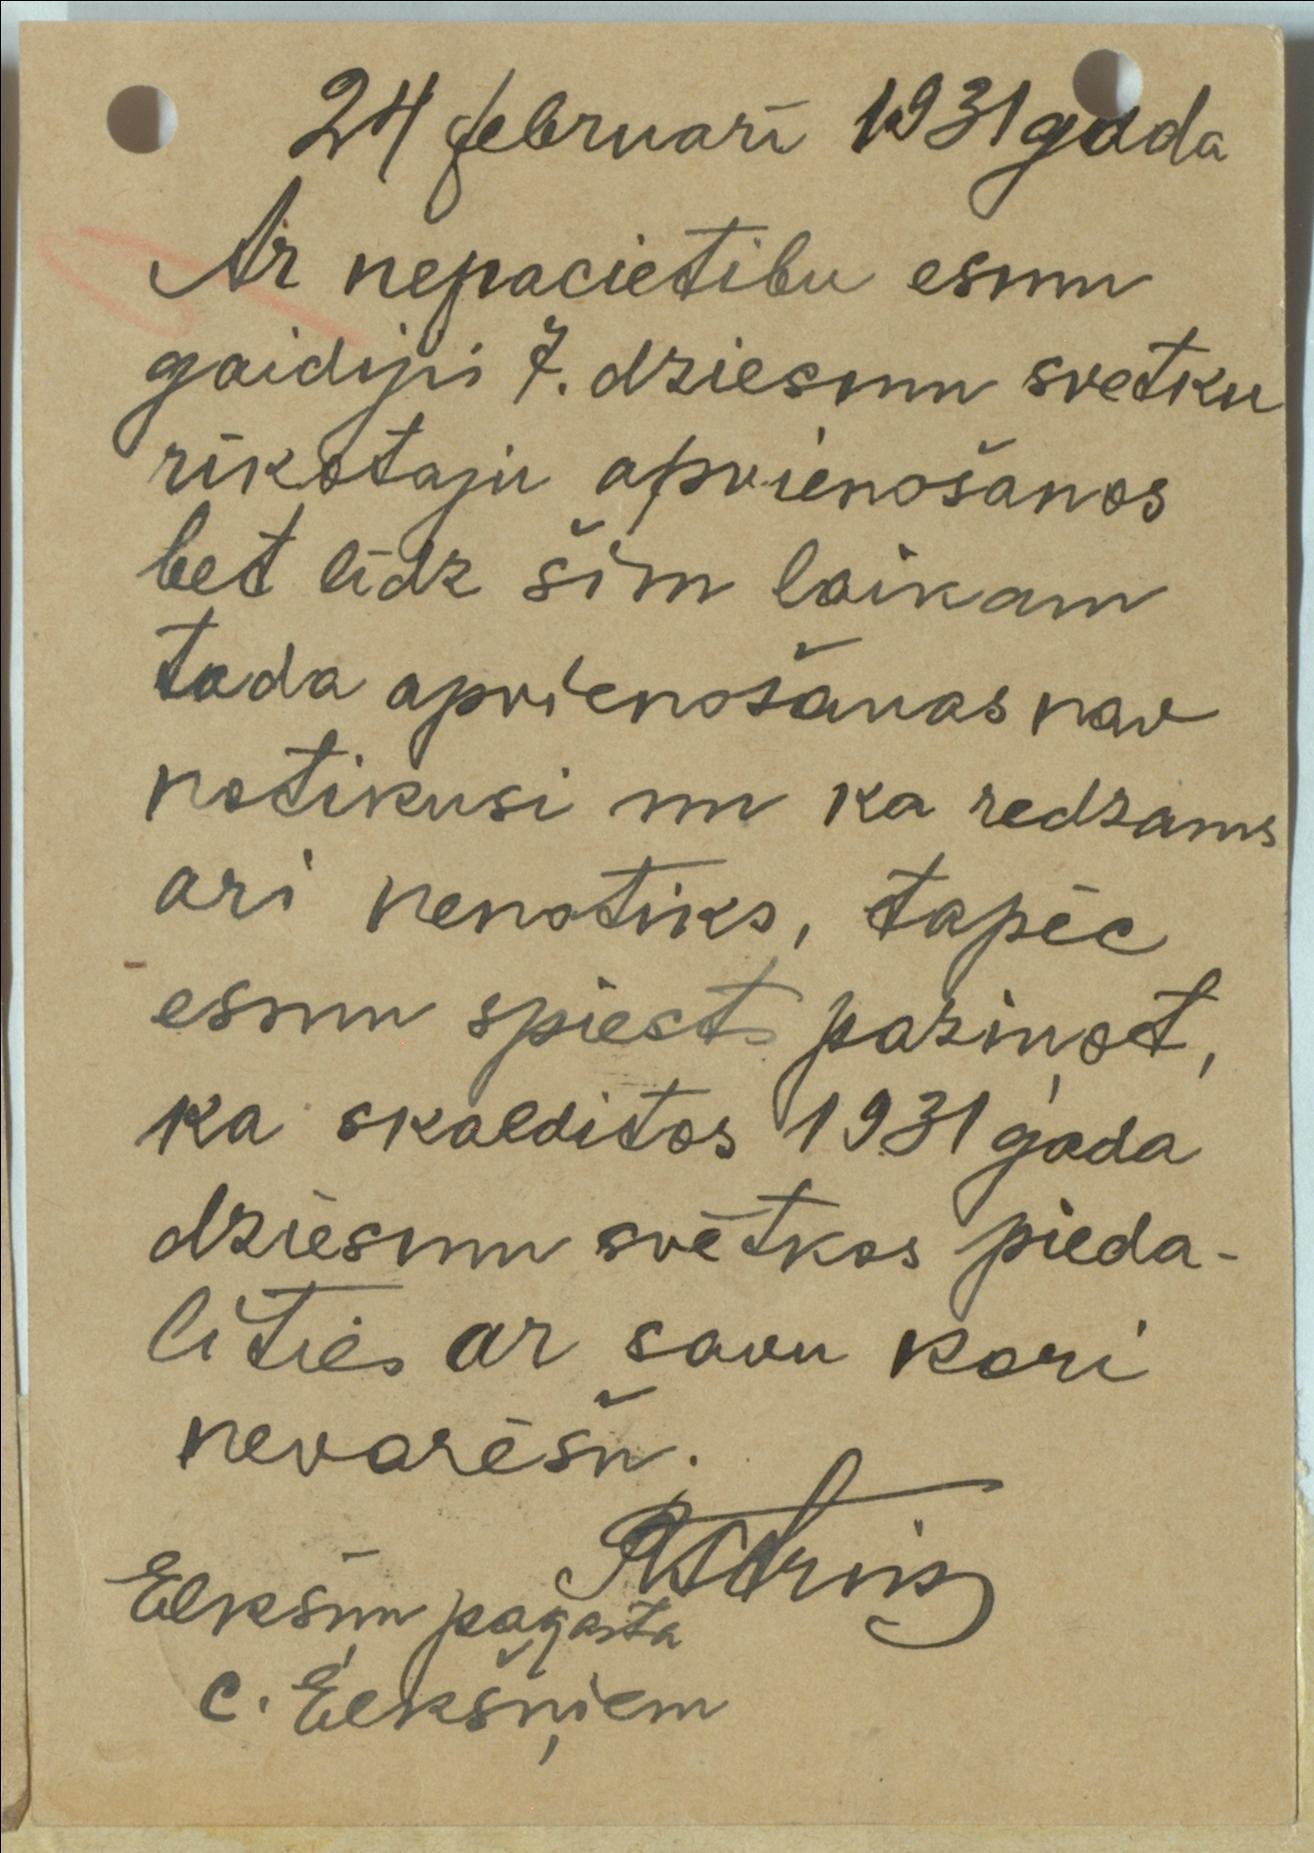 24 februarī 1931 gada
Ar nepacietibu esmu
gaidijis 7. dziesmu svetku
rīkotaju apvienošanos
bet līdz šim laikam
tada apvienošanas nav
notikusi un ka redzams
ari nenotiks, tapēc
esmu spiests paziņot,
ka skalditos 1931 gada
dziesmu svētkos pieda-
lities ar savu kori
nevarēšu.
Elkšņu pagasta
c. Elkšņiem